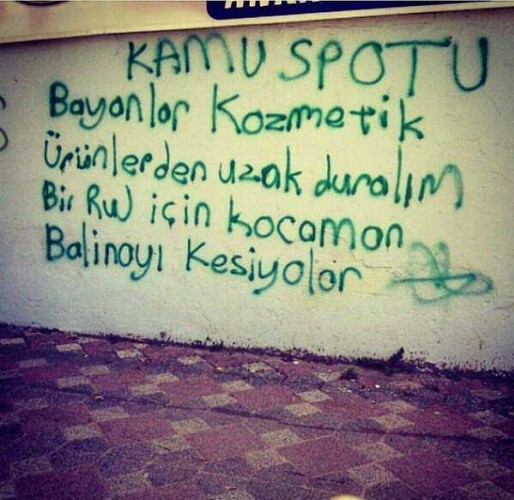 KAMU SPOTU
Bayanlar Kozmetik
Ürünlerden uzak duralım
Bir Ruj için kocaman
Balinayı Kesiyolar